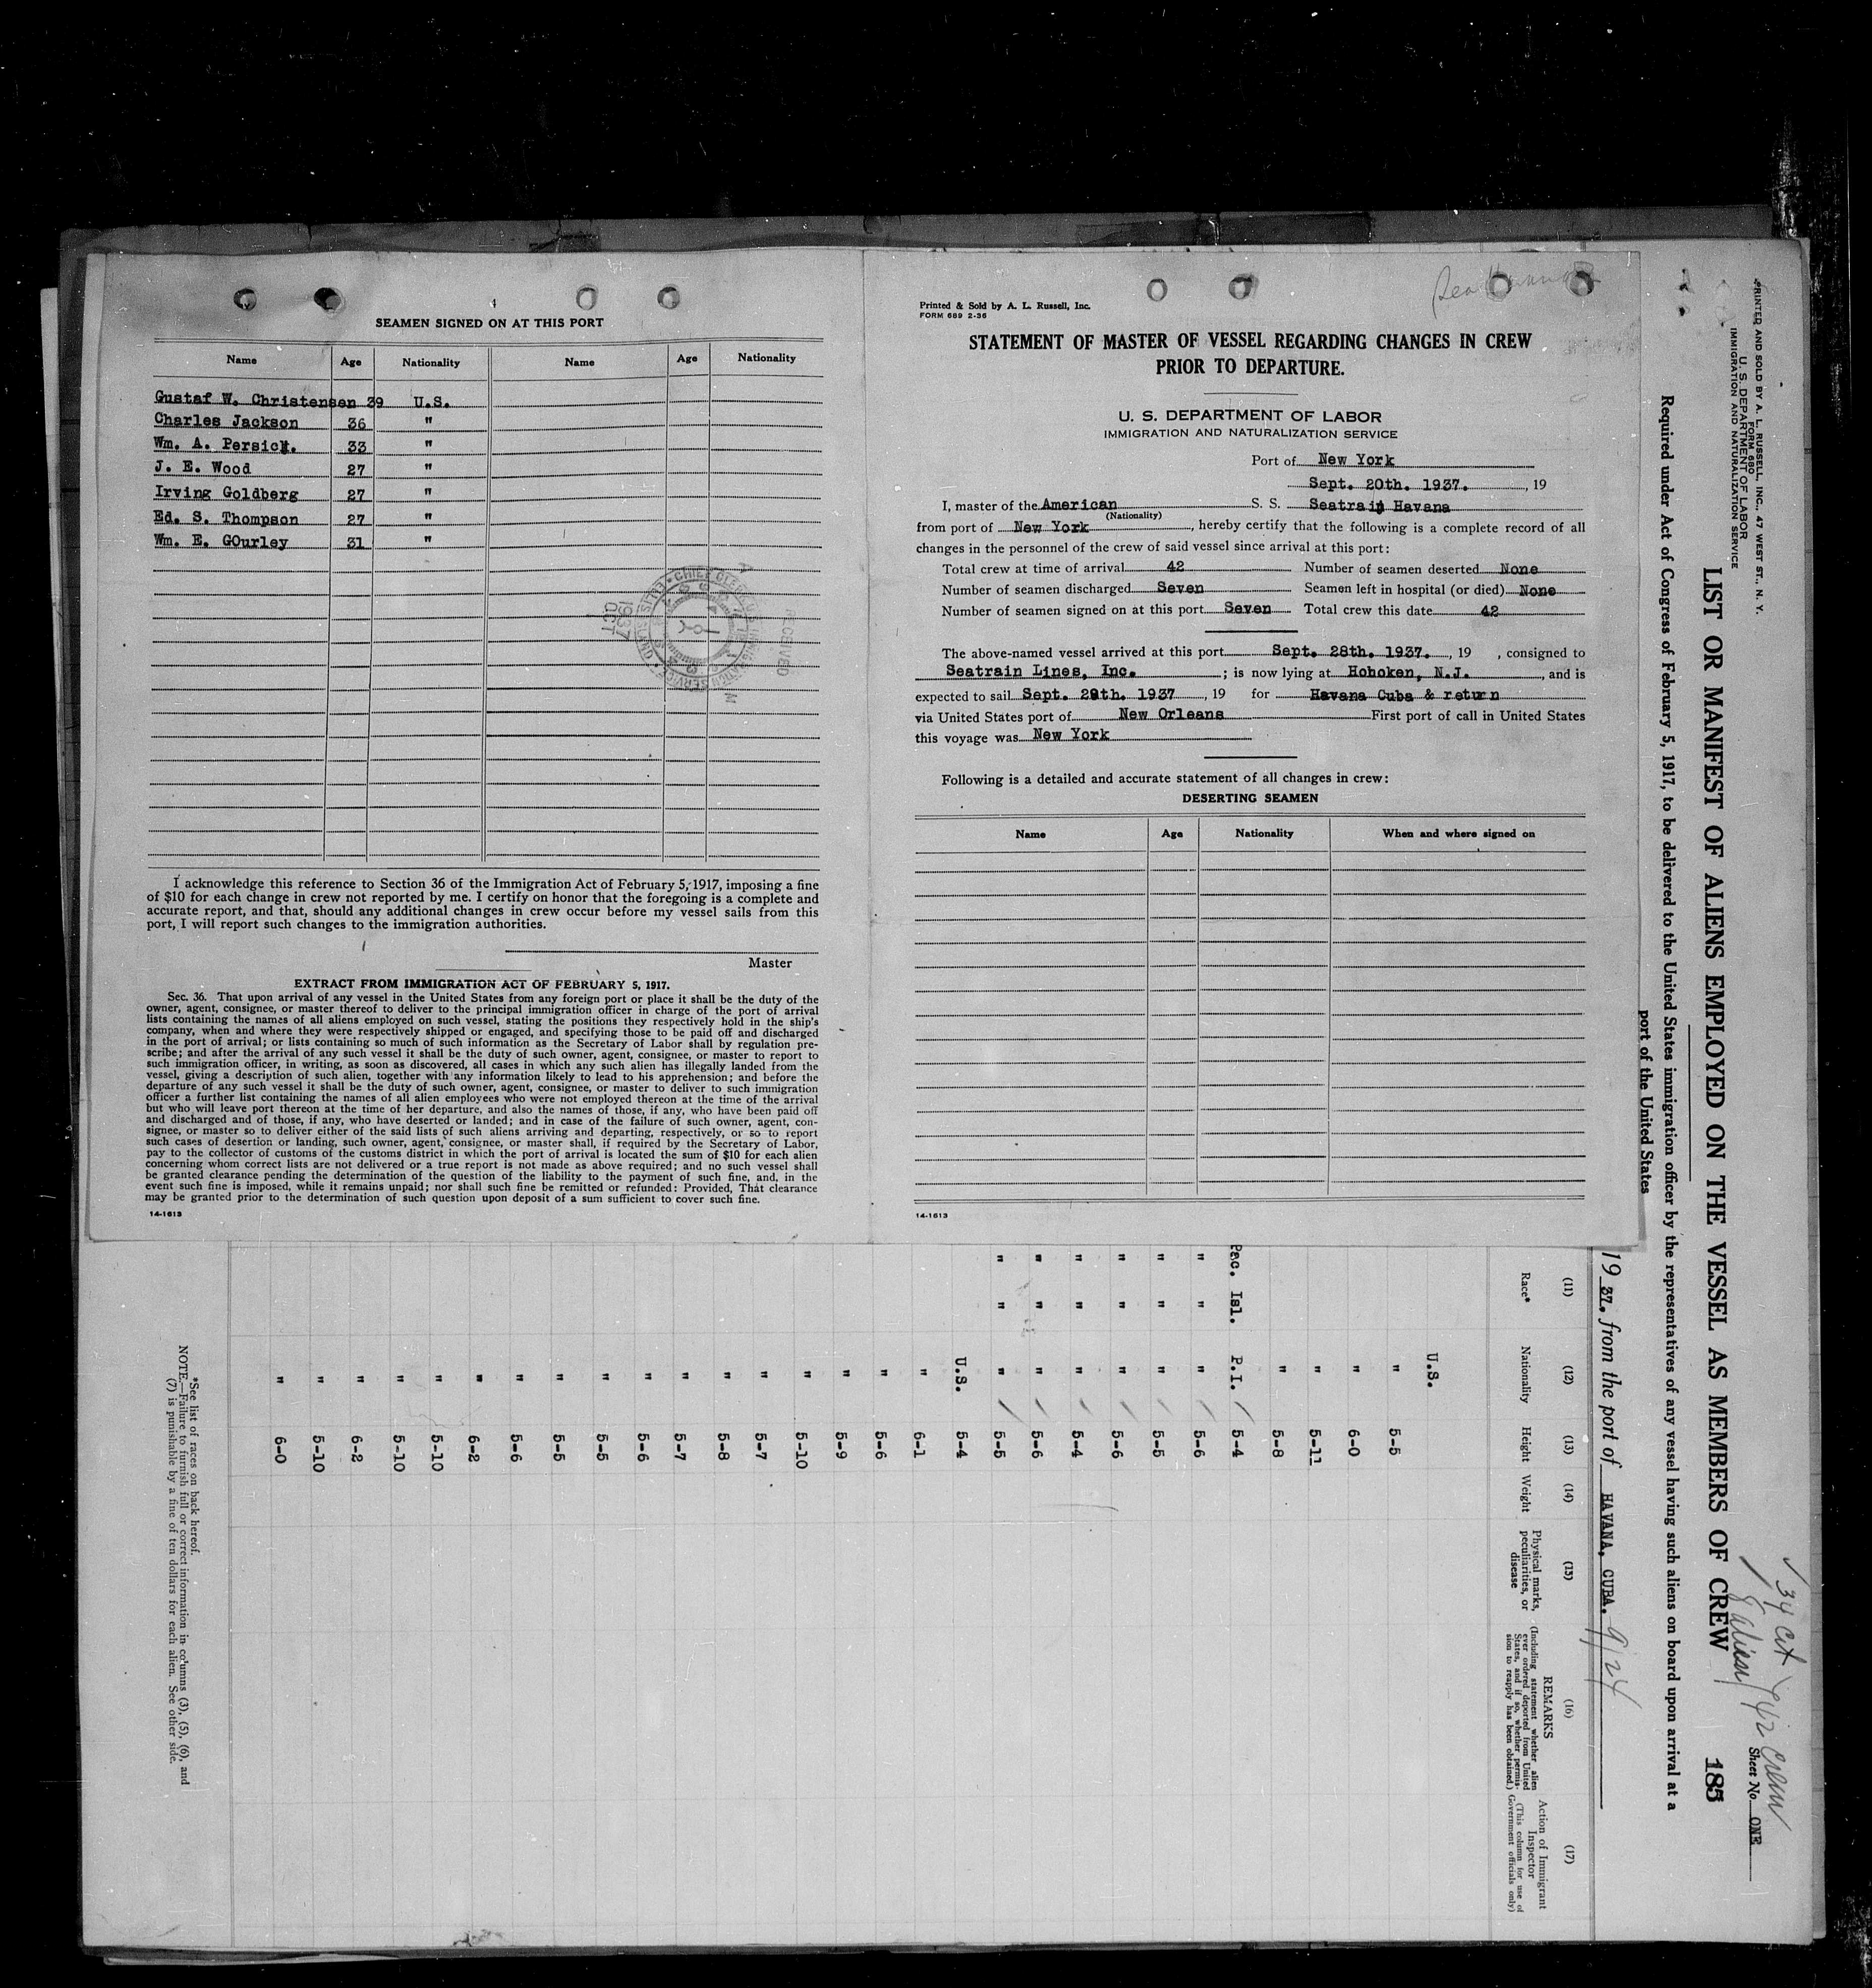 SEAMEN SIGNED ON AT THIS PORT
Name Age Nationality Name Age Nationality
Gustaf W. Christensen 39 U.S.
Charles Jackson 36 "
Wm. A. Persick. 33 "
J. E. Wood 27 "
Irving Goldberg 27 "
Ed. S. Thompson 27 "
Wm. E. GOurley 31 "
I acknowledge this reference to Section 36 of the Immigration Act of February 5, 1917, imposing a fine
of $10 for each change in crew not reported by me. I certify on honor that the foregoing is a complete and
accurate report, and that, should any additional changes in crew occur before my vessel sails from this
port, I will report such changes to the immigration authorities.
Master
EXTRACT FROM IMMIGRATION ACT OF FEBRUARY 5, 1917.
Sec. 36. That upon arrival of any vessel in the United States from any foreign port or place it shall be the duty of the
owner, agent, consignee, or master thereof to deliver to the principal immigration officer in charge of the port of arrival
lists containing the names of all aliens employed on such vessel, stating the positions they respectively hold in the ship's
company, when and where they were respectively shipped or engaged, and specifying those to be paid off and discharged
in the port of arrival; or lists containing so much of such information as the Secretary of Labor shall by regulation pre-
scribe; and after the arrival of any such vessel it shall be the duty of such owner, agent, consignee, or master to report to
such immigration officer, in writing, as soon as discovered, all cases in which any such alien has illegally landed from the
vessel, giving a description of such alien, together with any information likely to lead to his apprehension; and before the
departure of any such vessel it shall be the duty of such owner, agent, consignee, or master to deliver to such immigration
officer a further list containing the names of all alien employees who were not employed thereon at the time of the arrival
but who will leave port thereon at the time of her departure, and also the names of those, if any, who have been paid off
and discharged and of those, if any, who have deserted or landed; and in case of the failure of such owner, agent, con-
signee, or master so to deliver either of the said lists of such aliens arriving and departing, respectively, or so to report
such cases of desertion or landing, such owner, agent, consignee, or master shall, if required by the Secretary of Labor,
pay to the collector of customs of the customs district in which the port of arrival is located the sum of $10 for each alien
concerning whom correct lists are not delivered or a true report is not made as above required; and no such vessel shall
be granted clearance pending the determination of the question of the liability to the payment of such fine, and, in the
event such fine is imposed, while it remains unpaid; nor shall such fine be remitted or refunded: Provided, That clearance
may be granted prior to the determination of such question upon deposit of a sum sufficient to cover such fine.
14-1613
Printed & Sold by A. L. Russell, Inc.
FORM 689 2-36
STATEMENT OF MASTER OF VESSEL REGARDING CHANGES IN CREW
PRIOR TO DEPARTURE.
U. S. DEPARTMENT OF LABOR
IMMIGRATION AND NATURALIZATION SERVICE
Port of New York
Sept. 20th. 1937. , 19
I, master of the American S. S. Seatrain Havana
(Nationality)
from port of New York , hereby certify that the following is a complete record of all
changes in the personnel of the crew of said vessel since arrival at this port:
Total crew at time of arrival 42 Number of seamen deserted None
Number of seamen discharged Seven Seamen left in hospital (or died) None
Number of seamen signed on at this port Seven Total crew this date 42
The above-named vessel arrived at this port Sept. 28th. 1937. , 19 , consigned to
Seatrain Lines, Inc. ; is now lying at Hoboken, N.J. , and is
expected to sail Sept. 29th. 1937 , 19 for Havana Cuba & return
via United States port of New Orleans First port of call in United States
this voyage was New York
Following is a detailed and accurate statement of all changes in crew:
DESERTING SEAMEN
Name Age Nationality When and where signed on
14-1613
PRINTED AND SOLD BY A. L. RUSSELL, INC., 47 WEST ST., N. Y.
FORM 680
U. S. DEPARTMENT OF LABOR
IMMIGRATION AND NATURALIZATION SERVICE
34 cit
8 aliens
42 crew
Sheet No. ONE
LIST OR MANIFEST OF ALIENS EMPLOYED ON THE VESSEL AS MEMBERS OF CREW 185
Required under Act of Congress of February 5, 1917, to be delivered to the United States immigration officer by the representatives of any vessel having such aliens on board upon arrival at a
port of the United States
19 37. from the port of HAVANA, CUBA. 9/24
(11) (12) (13) (14) (15) (16) (17)
Race* Nationality Height Weight Physical marks, peculiarities, or disease
REMARKS
(Including statement whether alien ever ordered deported from United States, and if so, whether permission to reapply has been obtained.)
Action of Immigrant Inspector
(This column for use of Government officials only)
U.S.
" 5-5
" 6-0
" 5-11
" 5-8
Pac. Isl. P.I. 5-4
" " " 5-6
" " " 5-5
" " " 5-6
" " " 5-4
" " " 5-6
" " " 5-5
U.S. 5-4
" 6-1
" 5-6
" 5-9
" 5-10
" 5-7
" 5-8
" 5-7
" 5-6
" 5-5
" 5-5
" 5-6
" 6-2
" 5-10
" 5-10
" 6-2
" 5-10
" 6-0
*See list of races on back hereof.
NOTE.—Failure to furnish full or correct information in columns (3), (5), (6), and
(7) is punishable by a fine of ten dollars for each alien. See other side.